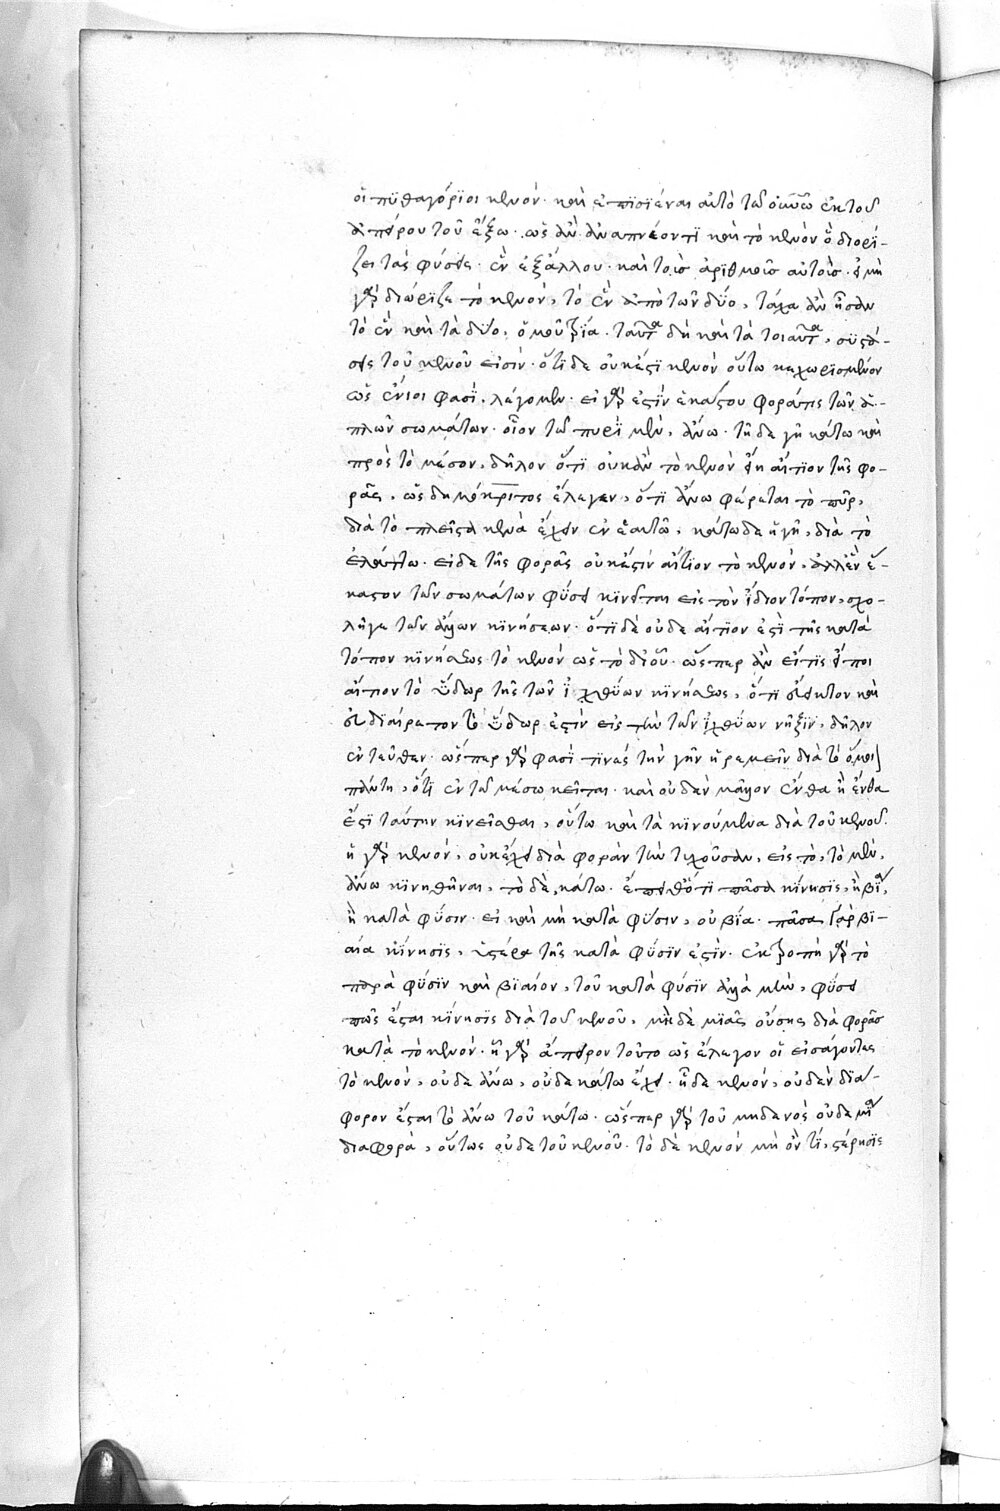 οἱ πϋθαγόρϊοι κενόν· καὶ ἐπϊσϊέναι αὐτὸ τῶ οὐνῶ ἐκ τοῦ
ἀπείρου τοῦ ἔξω· ὡς ἂν ἀναπνέοντϊ καὶ τὸ κενόν ὃ διορί-
ζει τὰς φύσεις· ἓν ἐξ ἄλλου· καὶ τοῖς ἀρϊθμοῖς αὐτοῖς· εἰ μὴ
γὰρ διώρϊζε τὸ κενόν, τὸ ἓν ἀπὸ τῶν δύο, τάχα ἂν ἦσαν
τὸ ἓν καὶ τὰ δύο, ὁμοῦ τρία· ταῦτα δὴ καὶ τὰ τοιαῦτα, συστά-
σεις τοῦ κενοῦ εἰσίν· ὅτϊ δὲ οὐκ ἔστϊ κενὸν οὕτω κεχωρϊσμένον
ὡς ἔνιοι φασΐ, λέγομεν· εἰ γάρ ἐστϊν ἑκάστου φορά τϊς τῶν ἁ-
πλῶν σωμάτων· οἷον τῶ πυρῒ μὲν, ἄνω· τῆ δὲ γῆ κάτω καὶ
πρὸς τὸ μέσον, δῆλον ὅτϊ οὐκ ἂν τὸ κενὸν εἴη αἴτϊον τῆς φο-
ρᾶς, ὡς δημόκριτος ἔλεγεν, ὅτϊ ἄνω φέρεται τὸ πῦρ,
διὰ τὸ πλεῖστα κενὰ ἔχειν ἐν ἑαυτῶ, κάτω δὲ ἡ γῆ, διὰ τὸ
ἐλάττω· εἰ δὲ τῆς φορᾶς οὐκ ἔστϊν αἴτϊον τὸ κενόν, ἀλλ' ἓν ἕ-
καστον τῶν σωμάτων φύσει κϊνεῖται εἰς τὸν ἴδιον τόπον, σχο-
λῆγε τῶν ἄλλων κϊνήσεων· ὅτϊ δὲ οὐδὲ αἴτϊον ἐστϊ τῆς κατὰ
τόπον κϊνήσεως τὸ κενὸν ὡς τὸ δι' οὗ· ὥσπερ ἂν εἴ τϊς εἴποι
αἴτιον τὸ ὕδωρ τῆς τῶν ἰχθύων κϊνήσεως, ὅτϊ εἴκτον καὶ
εὐδϊαίρετον τὸ ὕδωρ ἐστϊν εἰς τὴν τῶν ἰχθύων νῆξϊν, δῆλον
ἐντεῦθεν· ὥσπερ γὰρ φασΐ τϊνὲς τὴν γῆν ἠρεμεῖν διὰ τὸ ὁμοι
πάντη, ὅτϊ ἐν τῶ μέσω κεῖται· καὶ οὐδὲν μᾶλλον ἔνθα ἢ ἔνθα
ἔστϊ ταύτην κϊνεῖσθαι, οὕτω καὶ τὰ κϊνούμενα διὰ τοῦ κενοῦ·
ἧ γὰρ κενόν, οὐκ ἔχει διαφορὰν τὴν τυχοῦσαν, εἰς τὸ, τὸ μὲν,
ἄνω κϊνηθῆναι, τὸ δὲ κάτω· ἔπειθ' ὅτϊ πᾶσα κίνησϊς, ἢ βίᾳ,
ἢ κατὰ φύσιν· εἰ καὶ μὴ κατὰ φύσιν, οὐ βία· πᾶσα γὰρ βϊ-
αία κίνησϊς, ὑστέρα τῆς κατὰ φύσϊν ἐστϊν· ἐκτροπὴ γὰρ τὸ
παρὰ φύσϊν καὶ βϊαιόν, τοῦ κατὰ φύσϊν ἀλλὰ μὴν, φύσει
πῶς ἔσται κίνησϊς διὰ τοῦ κενοῦ, μὴδὲ μϊᾶς οὔσης διαφορᾶς
κατὰ τὸ κενόν· ἧ γὰρ ἄπειρον τοῦτο ὡς ἔλεγον οἱ εἰσάγοντες
τὸ κενόν, οὐδὲ ἄνω, οὐδὲ κάτω ἔχει· ἧ δὲ κενόν, οὐδὲν δϊά-
φορον ἔσται τὸ ἄνω τοῦ κάτω· ὥσπερ γὰρ τοῦ μηδενὸς οὐδεμία
διαφορὰ, οὕτως οὐδὲ τοῦ κενοῦ· τὸ δὲ κενὸν μὴ ὄν τϊ, στέρησϊς